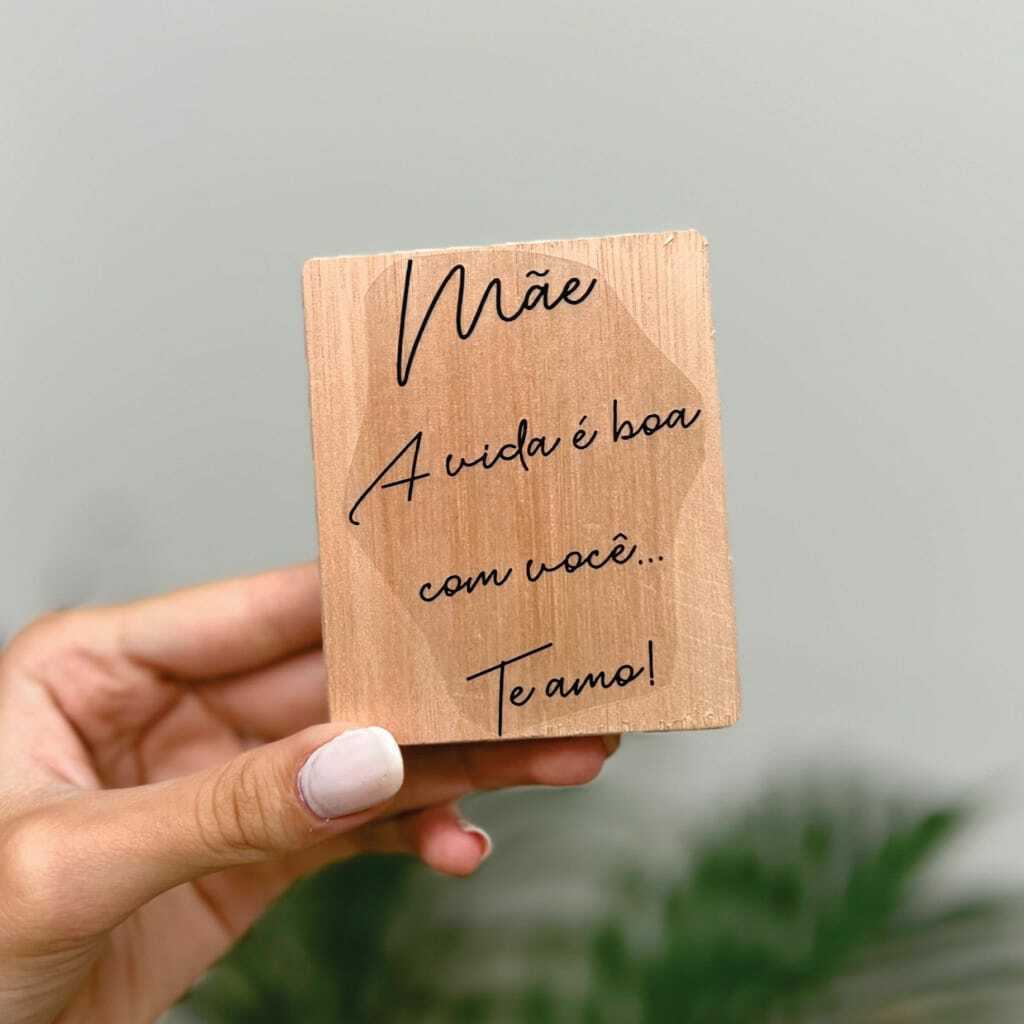 Mãe
A vida é boa
com você...
Te amo!